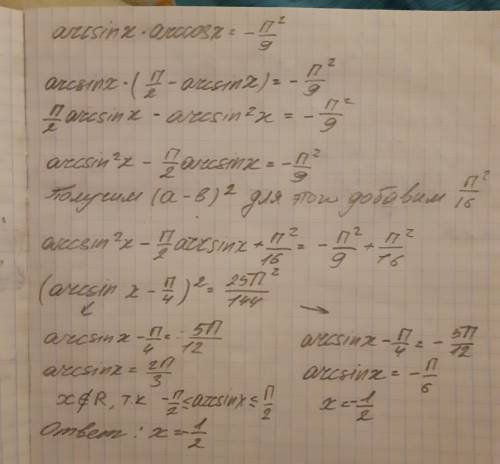 arcsinx · arccosx = -П²/9
arcsinx · (П/2 - arcsinx) = -П²/9
П/2 arcsinx - arcsin²x = -П²/9
arcsin²x - П/2 arcsinx = -П²/9
Получим (a-b)² для этого добавим П²/16
arcsin²x - П/2 arcsinx + П²/16 = -П²/9 + П²/16
(arcsin x - П/4)² = 25П²/144
arcsinx - П/4 = 5П/12
arcsinx = 2П/3
x∉R, т.к -П/2 ≤ arcsinx ≤ П/2
arcsinx - П/4 = -5П/12
arcsinx = -П/6
x = -1/2
Ответ: x = -1/2